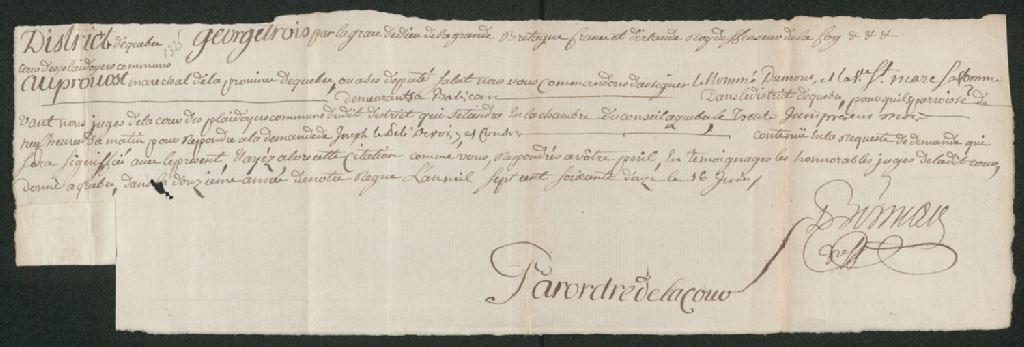 District de quebec 1325 George trois par la grace de dieu de la grande Bretagne france et d'irlande Roy defenseur de la foy & & &
cour des plaidoyers communs
Au prouost marechal de la province de quebec, ou a des député Salut nous vous Commandons d'assigner le Nommé Dumons, et la Ve St. marc sa femme
demeurants a Batiscan dans le district de quebec, pour qu'il paroisse de
vant nous juges de la cour des plaidoyers communs dudit district qui se tiendra en la chambre du Conseil a quebec le trente Juin present mois
neuf heures de matin pour Respondre a la demande de Joseph le Beli et Consor contenüe en la Requeste de demande qui
sera signiffiée avec le present Rayéz alors cette Citation comme vous, Respondrés a vôtre peril, En temoignages les honnorables juges de la dit cour,
donné a quebec, dans la douzieme année de notre Regne L'an mil sept cent soixante douze le 16 Juin
Par ordre de la Cour